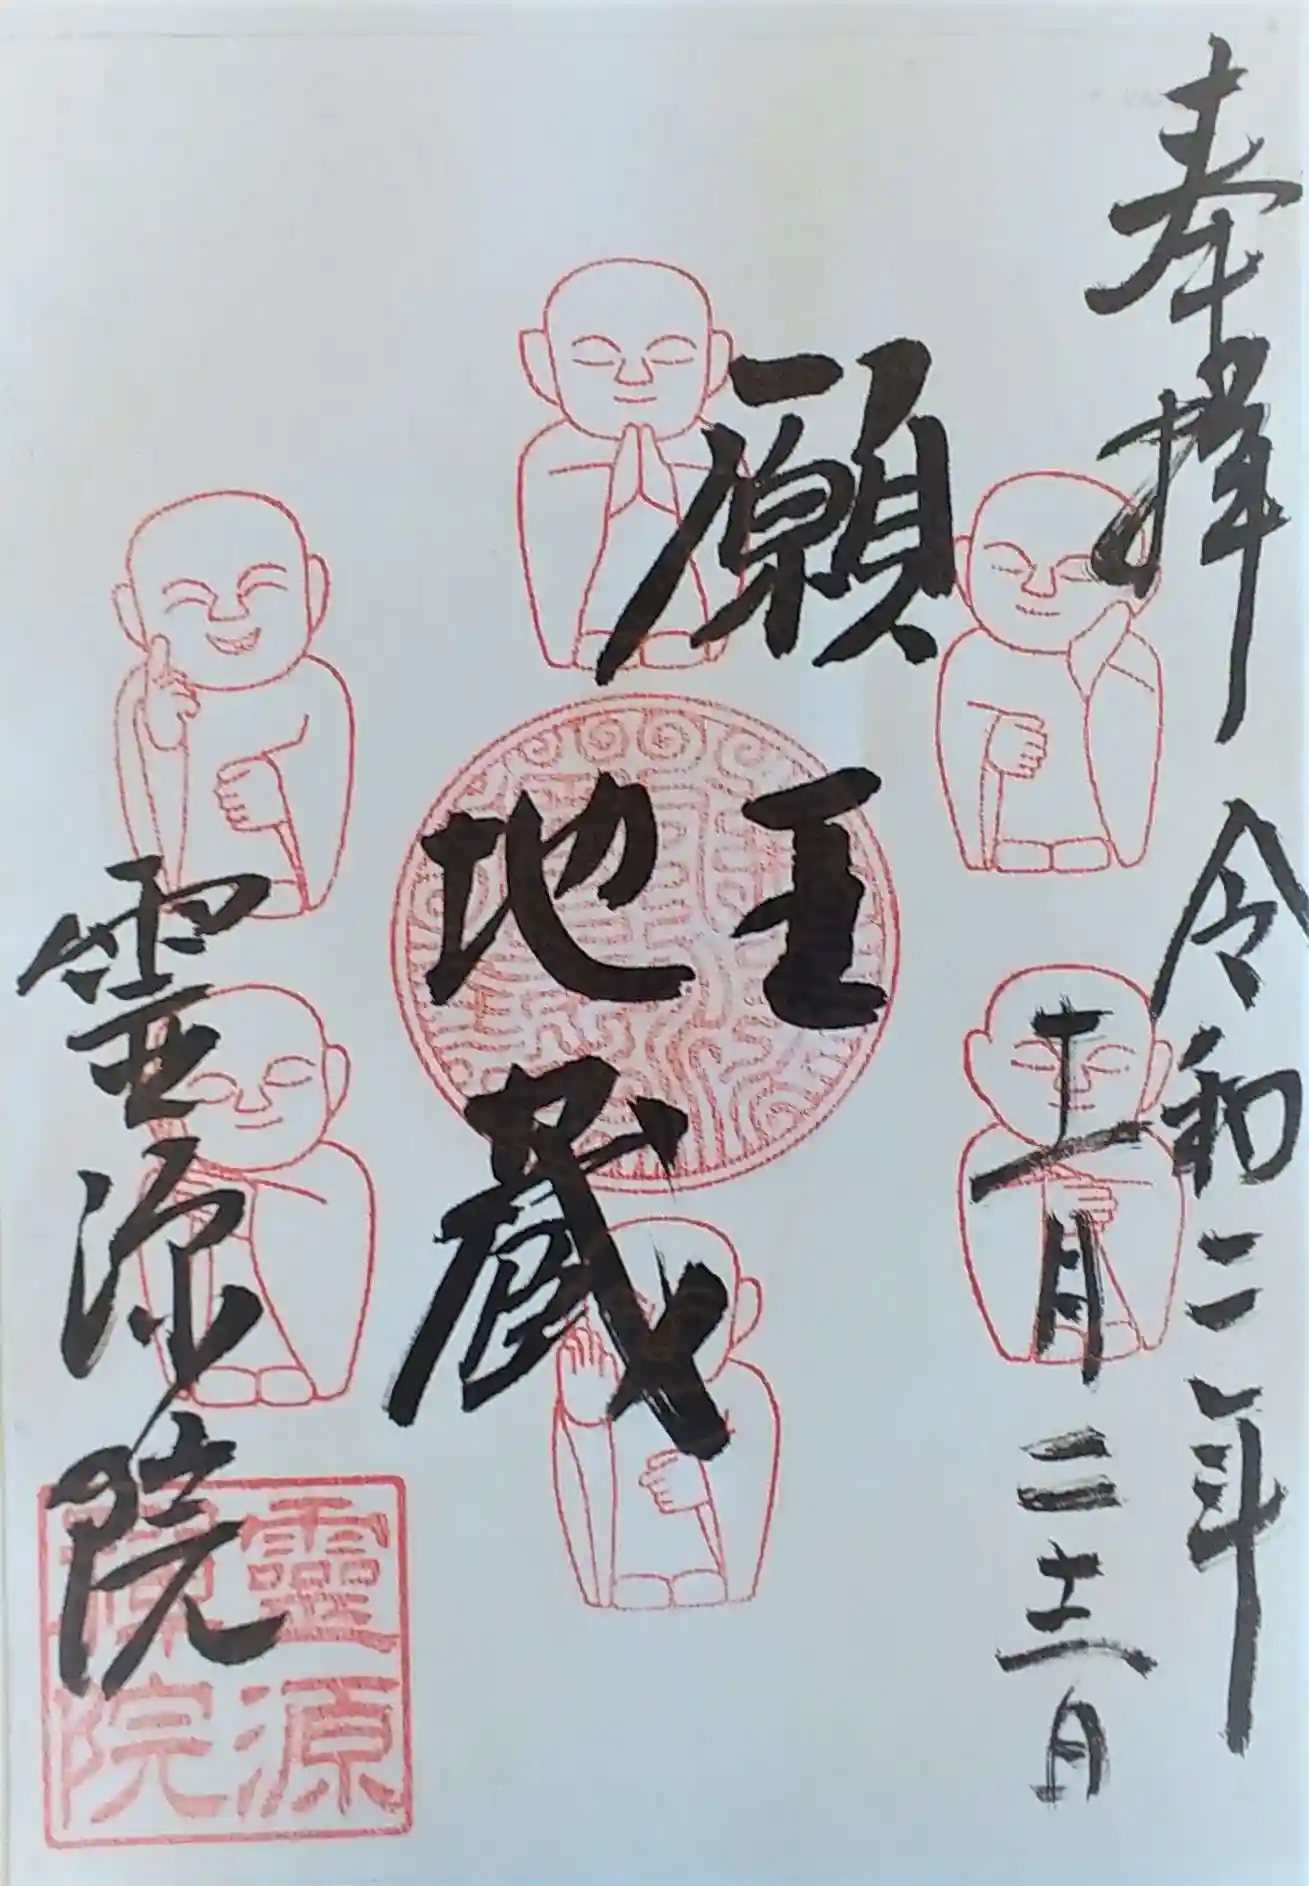 奉拝 令和二年
十一月二十二日
願王
地蔵
霊源院
靈源
禪院